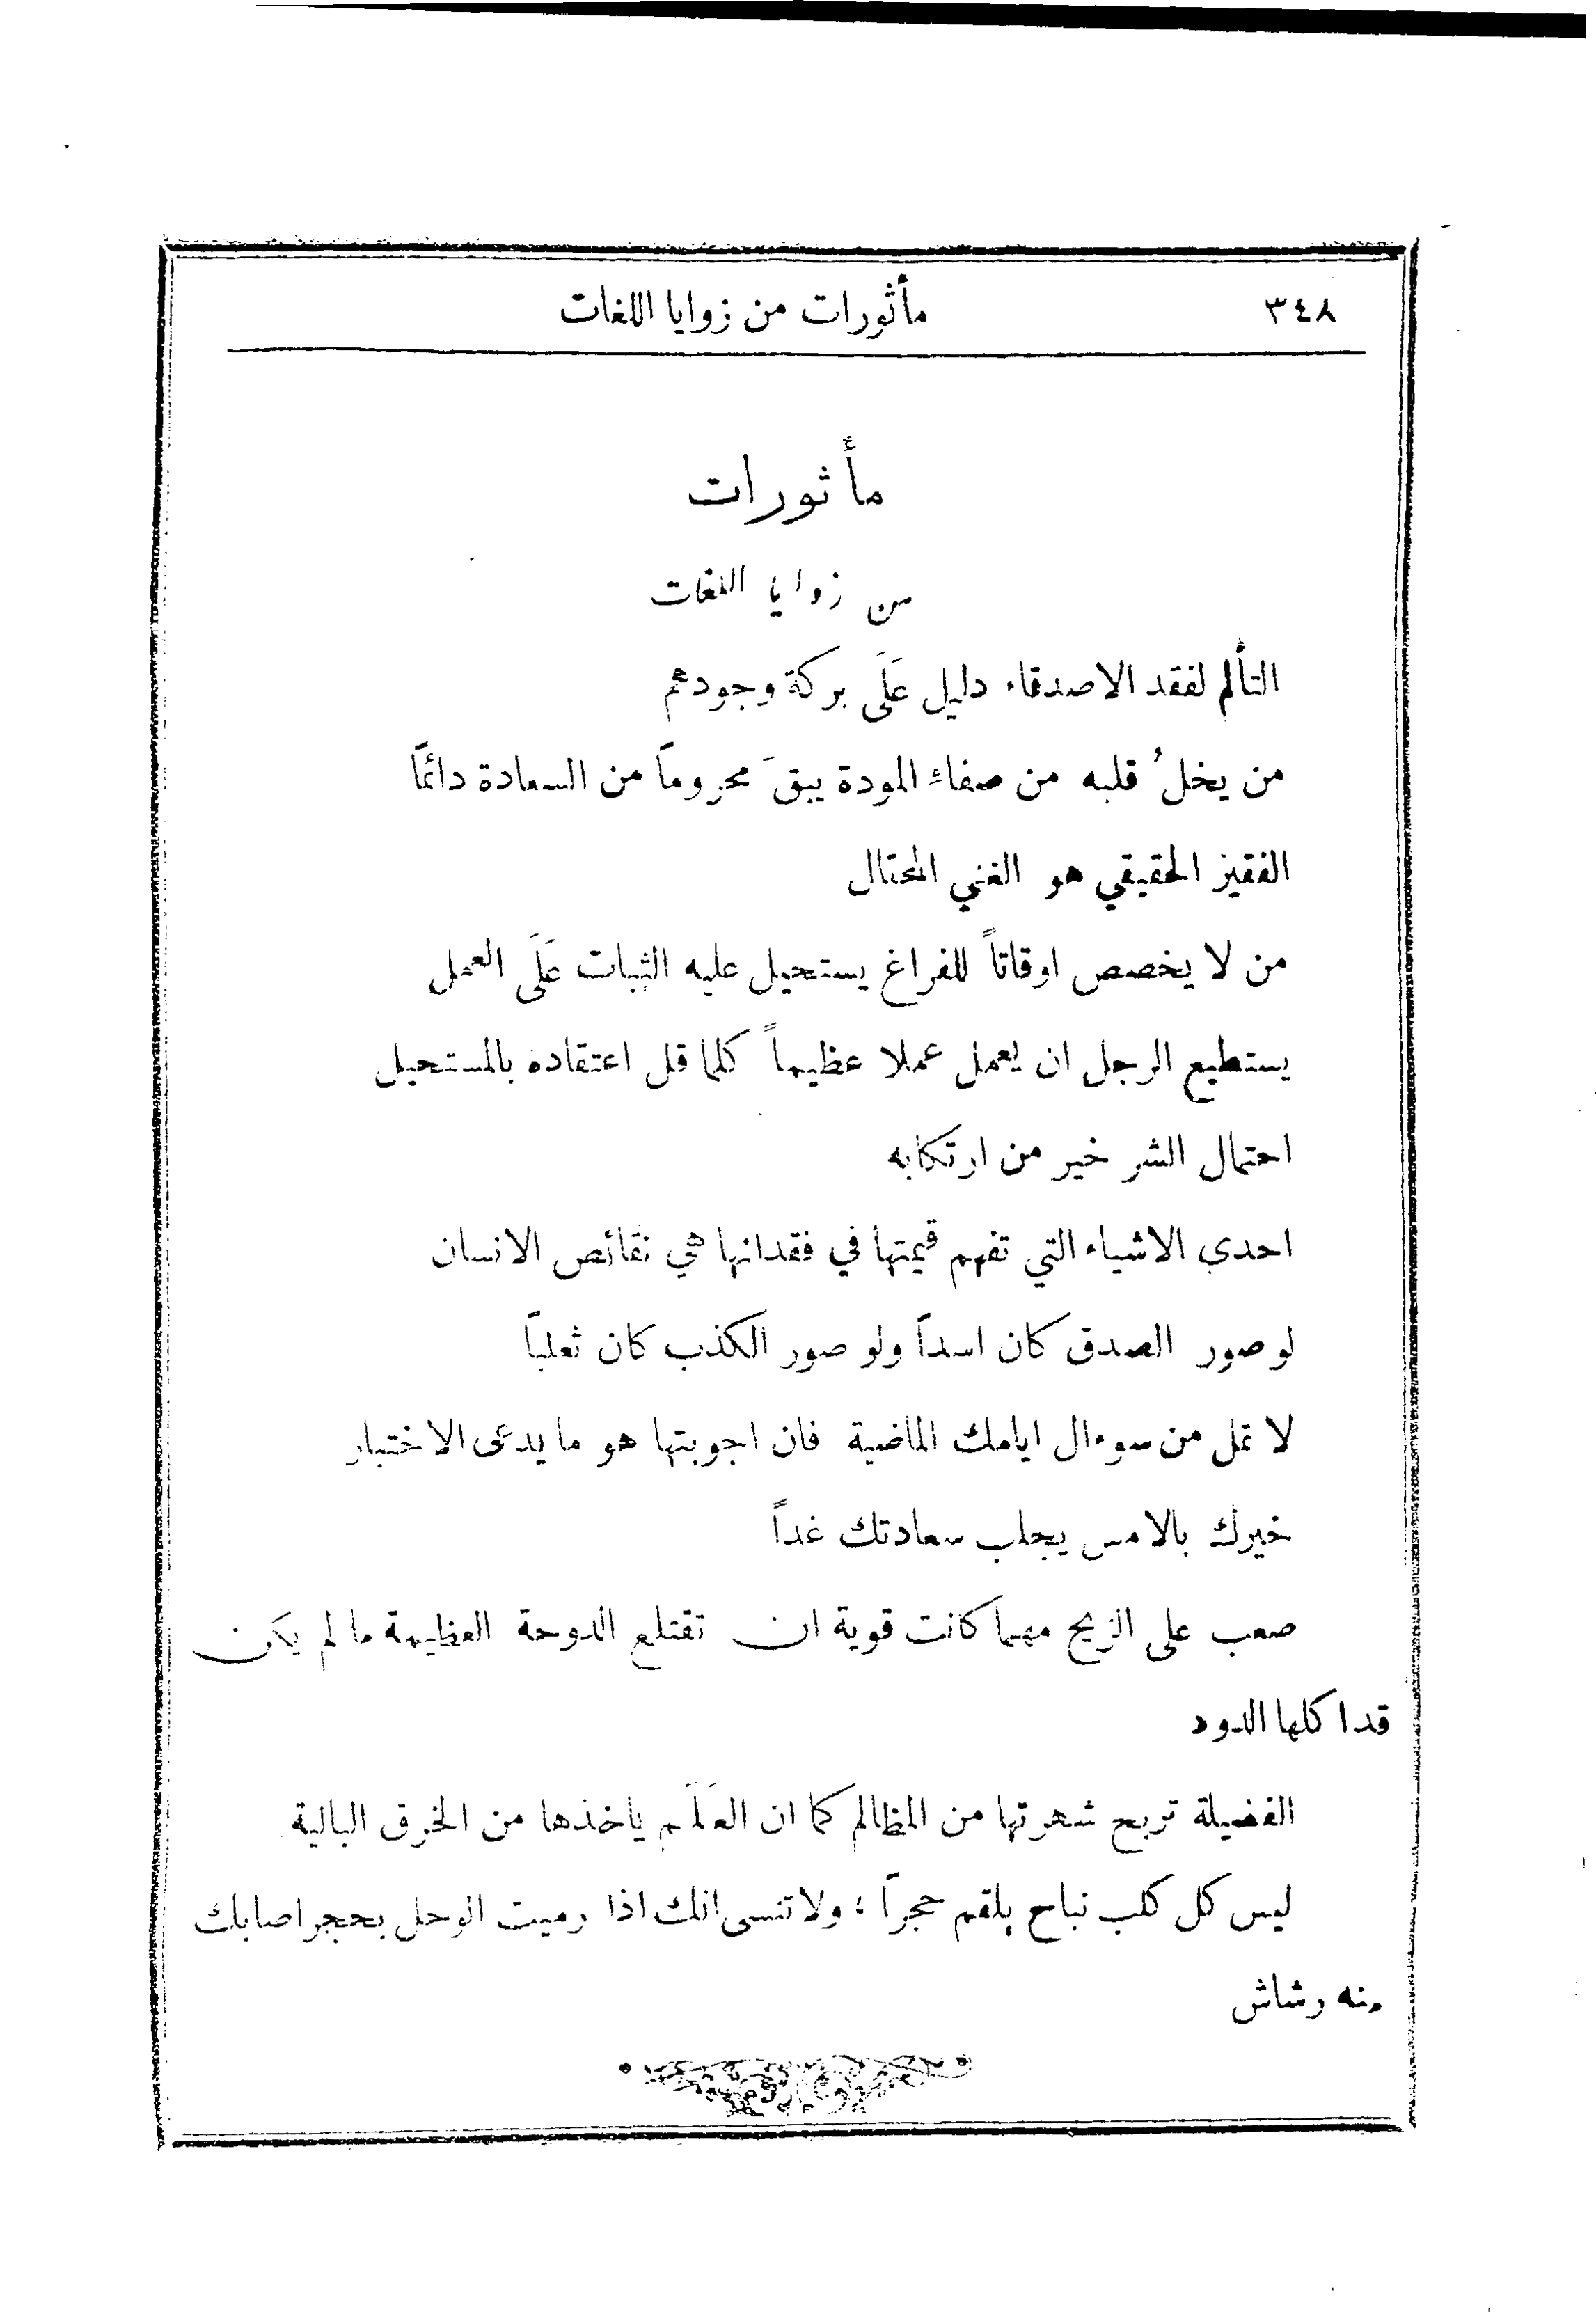 ٣٤٨ مأثورات من زوايا اللغات
مأثورات
من زوايا اللغات
التألم لفقد الاصدقاء دليل عَلَى بركة وجودهم
من يخلُ قلبه من صفاءِ المودة يبقَ محروماً من السعادة دائماً
الفقير الحقيقي هو الغني المحتال
من لا يخصص اوقاتاً للفراغ يستحيل عليه الثبات عَلَى العمل
يستطيع الرجل ان يعمل عملا عظيماً كلما قل اعتقاده بالمستحيل
احتمال الشر خير من ارتكابه
احدى الاشياء التي تفهم قيمتها في فقدانها هي نقائص الانسان
لو صور الصدق كان اسداً ولو صور الكذب كان ثعلباً
لا تمل من سوءال ايامك الماضية فان اجوبتها هو ما يدعى الاختبار
خيرك بالامس يجلب سعادتك غداً
صعب على الريح مهما كانت قوية ان تقتلع الدوحة العظيمة ما لم يكن
قد اكلها الدود
الفضيلة تربح شهرتها من المظالم كما ان العَلَم ياخذها من الخرق البالية
ليس كل كلب نباح يلقم حجراً ؛ ولا تنسى انك اذا رميت الوحل بحجر اصابك
منه رشاش